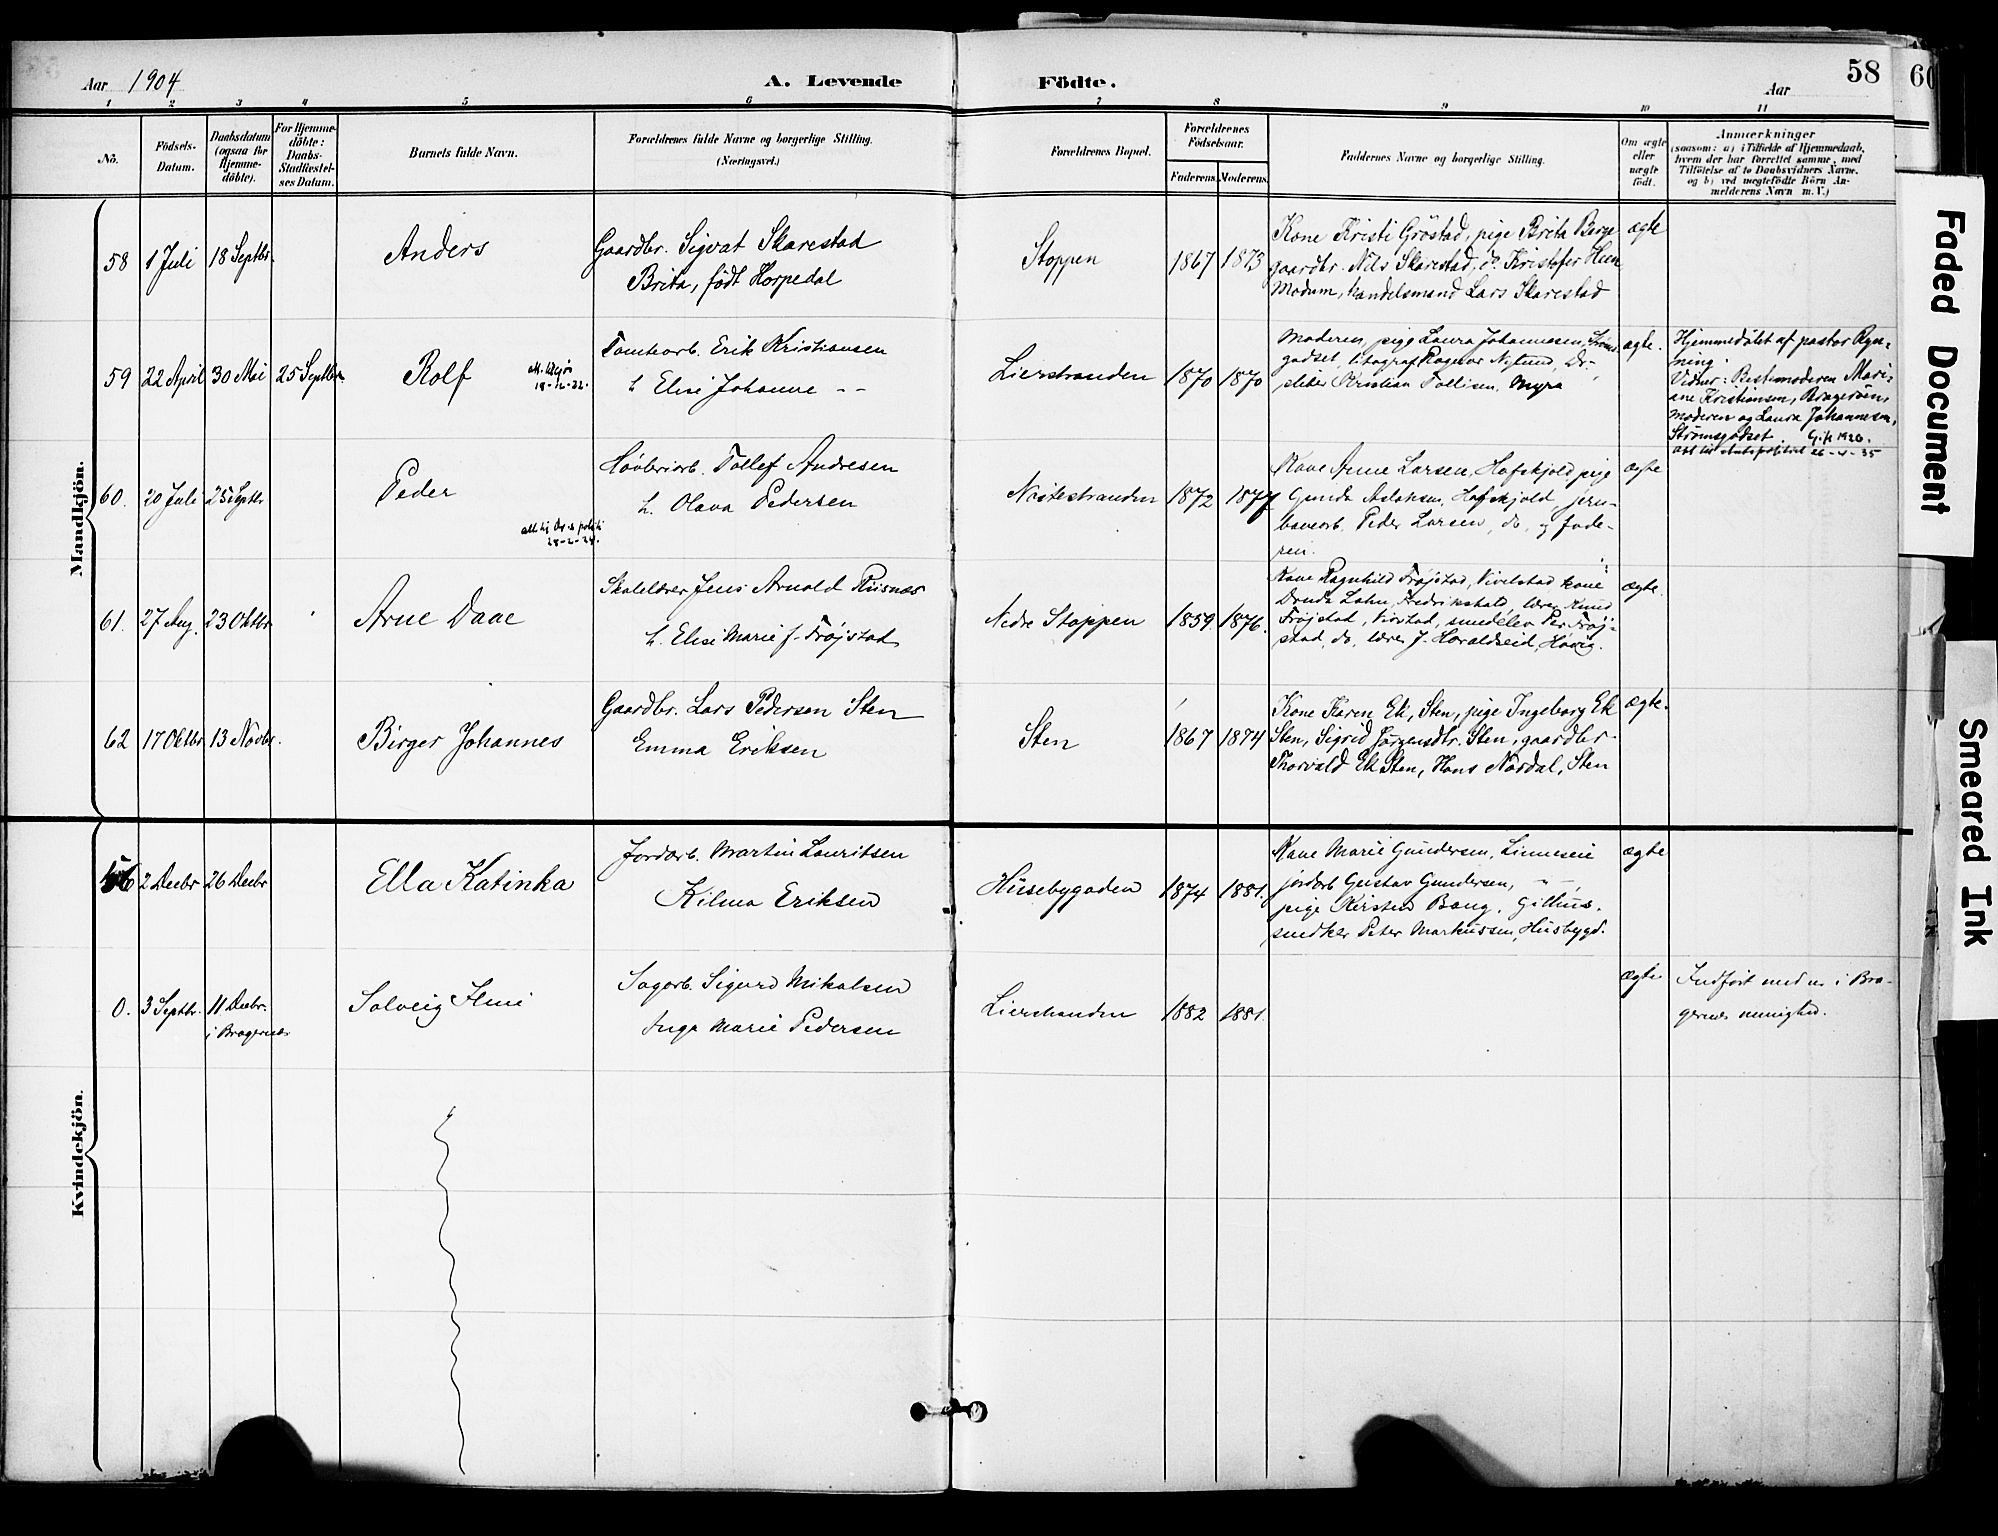 Aar 1904
A. Levende
Födte.
Aar
58
60
1 2 3 4 5 6 7 8 9 10 11
Nö.
Födsels-
Datum.
Daabsdatum
(ogsaa for
Hjemme-
döbte).
For Hjemme-
döbte:
Daabs-
Stadfæstel-
ses Datum.
Barnets fulde Navn.
Forældrenes fulde Navne og borgerlige Stilling.
(Næringsvei.)
Forældrenes Bopæl.
Forældrenes
Födselsaar.
Faderens. Moderens.
Faddernes Navne og borgerlige Stilling.
Om ægte
eller
uægte
födt.
Anmærkninger
(saasom: a) i Tilfælde af Hjemmedaab,
hvem der har forrettet samme, med
Tilföielse af to Daabsvidners Navne,
og b) ved uægtefödte Börn An-
melderens Navn m. V.)
Mandkjön.
58 1 Juli 18 Septbr.
Anders
Gaardbr. Sigvat Skarestad
Brita, födt Horpedal
Stoppen
1867 1873
Kone Kristi Gröstad, pige Brita Berge
gaardbr. Nils Skarestad, do. Kristofer Heen
Modum, handelsmand Lars Skarestad
ægte
59 22 April 30 Mai 25 Septbr.
Rolf
18-12-22.
Tomtearb. Erik Kristiansen
h. Elise Johanne - -
Lierstranden
1870 1870
Moderen, pige Laura Johannesen, Strøms-
godset, litograf Ragnar Nylund, Dr-
sliber Kristian Tollisen, Myra
ægte.
Hjemmedöbt af pastor Ryn-
ning.
Vidner: Bestemoderen Mari-
ane Kristiansen, Bragerøen,
Moderen og Laura Johannesen,
Strømsgodset. Gift 1920.
att til Amtspolitiet 26-4-35
60. 20 Juli 25 Septbr
Peder
att til Dr.s politi
28-2-28.
Høvleriarb. Tollef Andresen
h. Olava Pedersen
Nøstestranden
1872 1877
Kone Anne Larsen, Hofskjold, pige
Gunda Aslaksen, Hofskjold, jern-
banearb. Peder Larsen, do. og fade-
ren.
ægte
61. 27 Aug. 23 Oktbr.
Arne Daae
Skolelærer Jens Arnold Riisnæs
h. Elise Marie f. Frøjstad
Nedre Stoppen
1859. 1876.
Kone Ragnhild Frøjstad, Vivelstad kone
Druda Lahn, Fredrikshald, lærer Knud
Frøjstad, Vivstad, smedelev Per Frøj-
stad, do, lærer J. Haraldseid, Høvig.
ægte.
62 17 Oktbr 13 Novbr.
Birger Johannes
Gaardbr. Lars Pedersen Sten
Emma Eriksen
Sten
1867 1874
Kone Karen Ek, Sten, pige Ingeborg Ek
Sten, Sigrid Jørgensdtr. Sten, gaardbr.
Thorvald Ek Sten, Hans Nordal, Sten
ægte.
Kvindekjön.
56 2 Decbr 26 Decbr
Ella Katinka
Jordarb. Martin Lauritsen
Hilma Eriksen
Husebygaden
1874 1881.
Kone Marie Gundersen, Linneseie
jordarb Gustav Gundersen, - -,
pige Kirsten Bang, Gilhus.
snedker Peter Markussen, Husbygd.
ægte
0. 3 Septbr. 11 Decbr.
i Bragernæs
Solveig
Sagarb. Sigurd Mikalsen
Inga Marie Pedersen
Lierstranden
1882 1881.
ægte
Indført med nr i Bra-
gernæs menighed.
Faded Document
Smeared Ink